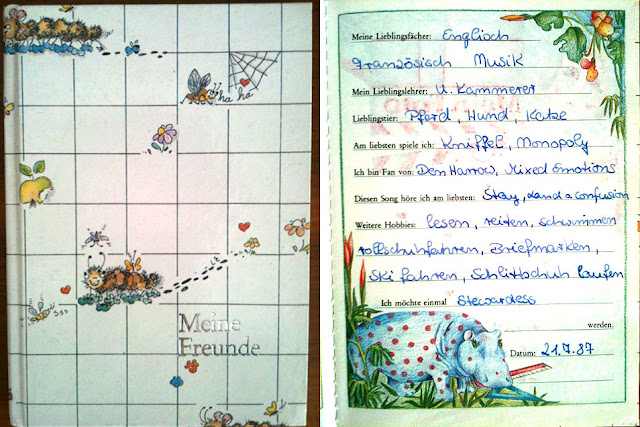 ha ha
Meine
Freunde
Meine Lieblingsfächer: Englisch
Französisch Musik
Mein Lieblingslehrer: U. Kammerer
Lieblingstier: Pferd, Hund, Katze
Am liebsten spiele ich: Kniffel, Monopoly
Ich bin Fan von: Den Harrow, Mixed Emotions
Diesen Song höre ich am liebsten: Stay, Land a confusion
Weitere Hobbies: lesen, reiten, schwimmen
rollschuhfahren, Briefmarken,
Ski fahren, Schlittschuh laufen
Ich möchte einmal Stewardess
werden.
Datum: 21.7.87